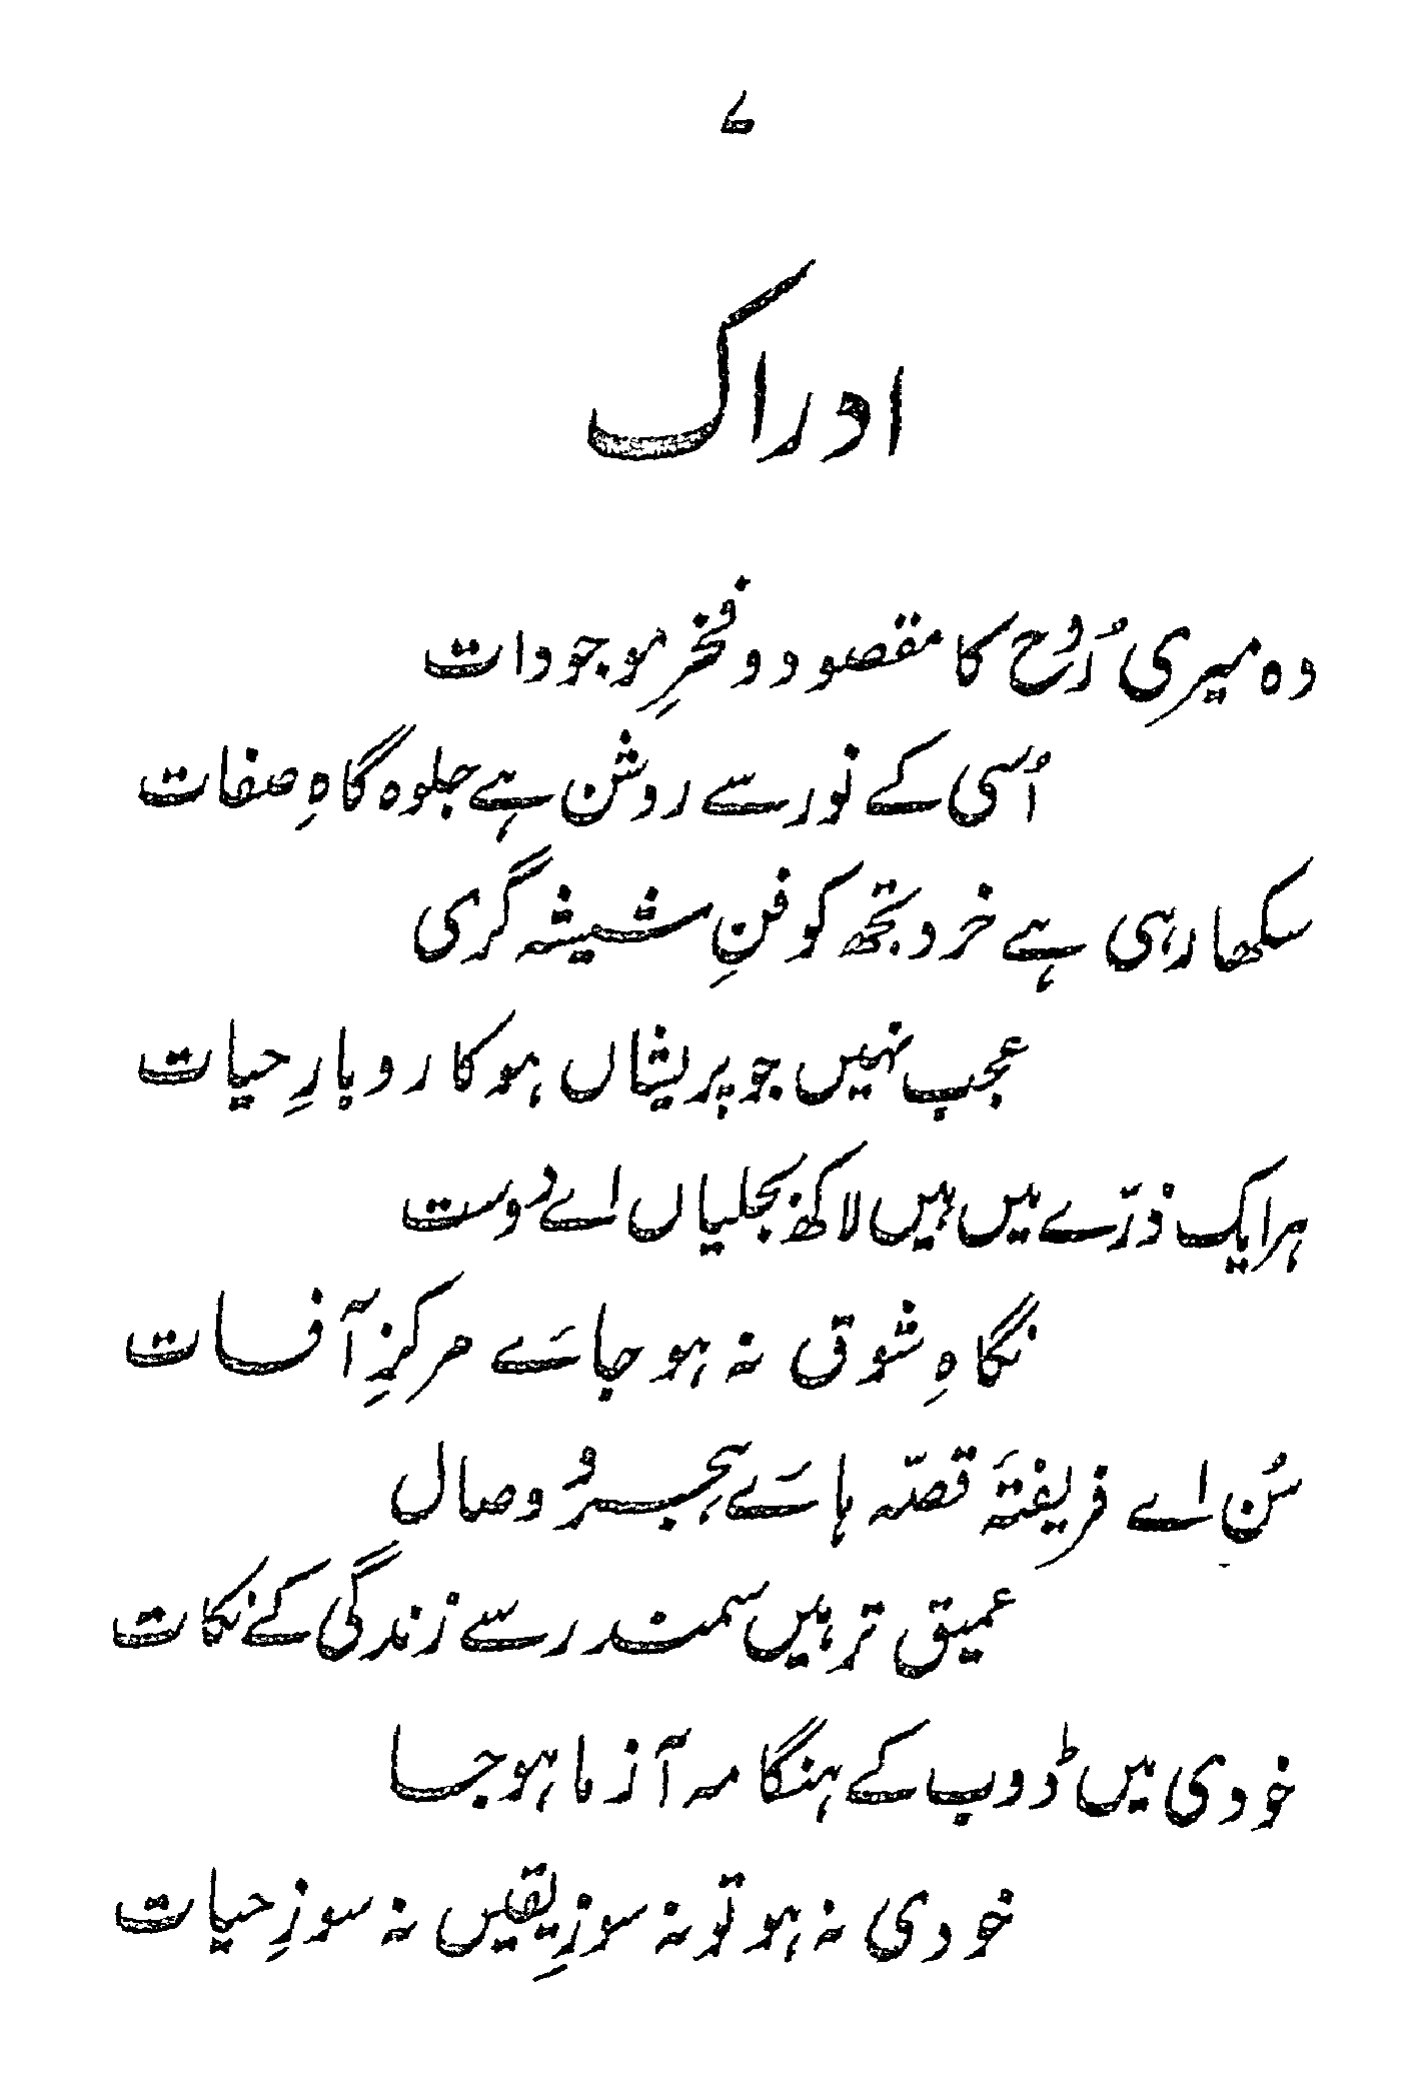 ۷
ادراک
وہ میری رُوح کا مقصود و فخرِ موجودات
اُسی کے نور سے روشن ہے جلوہ گاہِ صفات
سکھا رہی ہے خرد تجھ کو فنِ شیشہ گری
عجب نہیں جو پریشاں ہو کاروبارِ حیات
ہر ایک ذرّے میں ہیں لاکھ بجلیاں اے دوست
نگاہِ شوق نہ ہو جائے مرکزِ آفات
سُن اے فریفتۂ قصّہ ہائے ہجر و وصال
عمیق تر ہیں سمندر سے زندگی کے نکات
خودی میں ڈوب کے ہنگامہ آزما ہو جا
خودی نہ ہو تو نہ سوزِ یقیں نہ سوزِ حیات